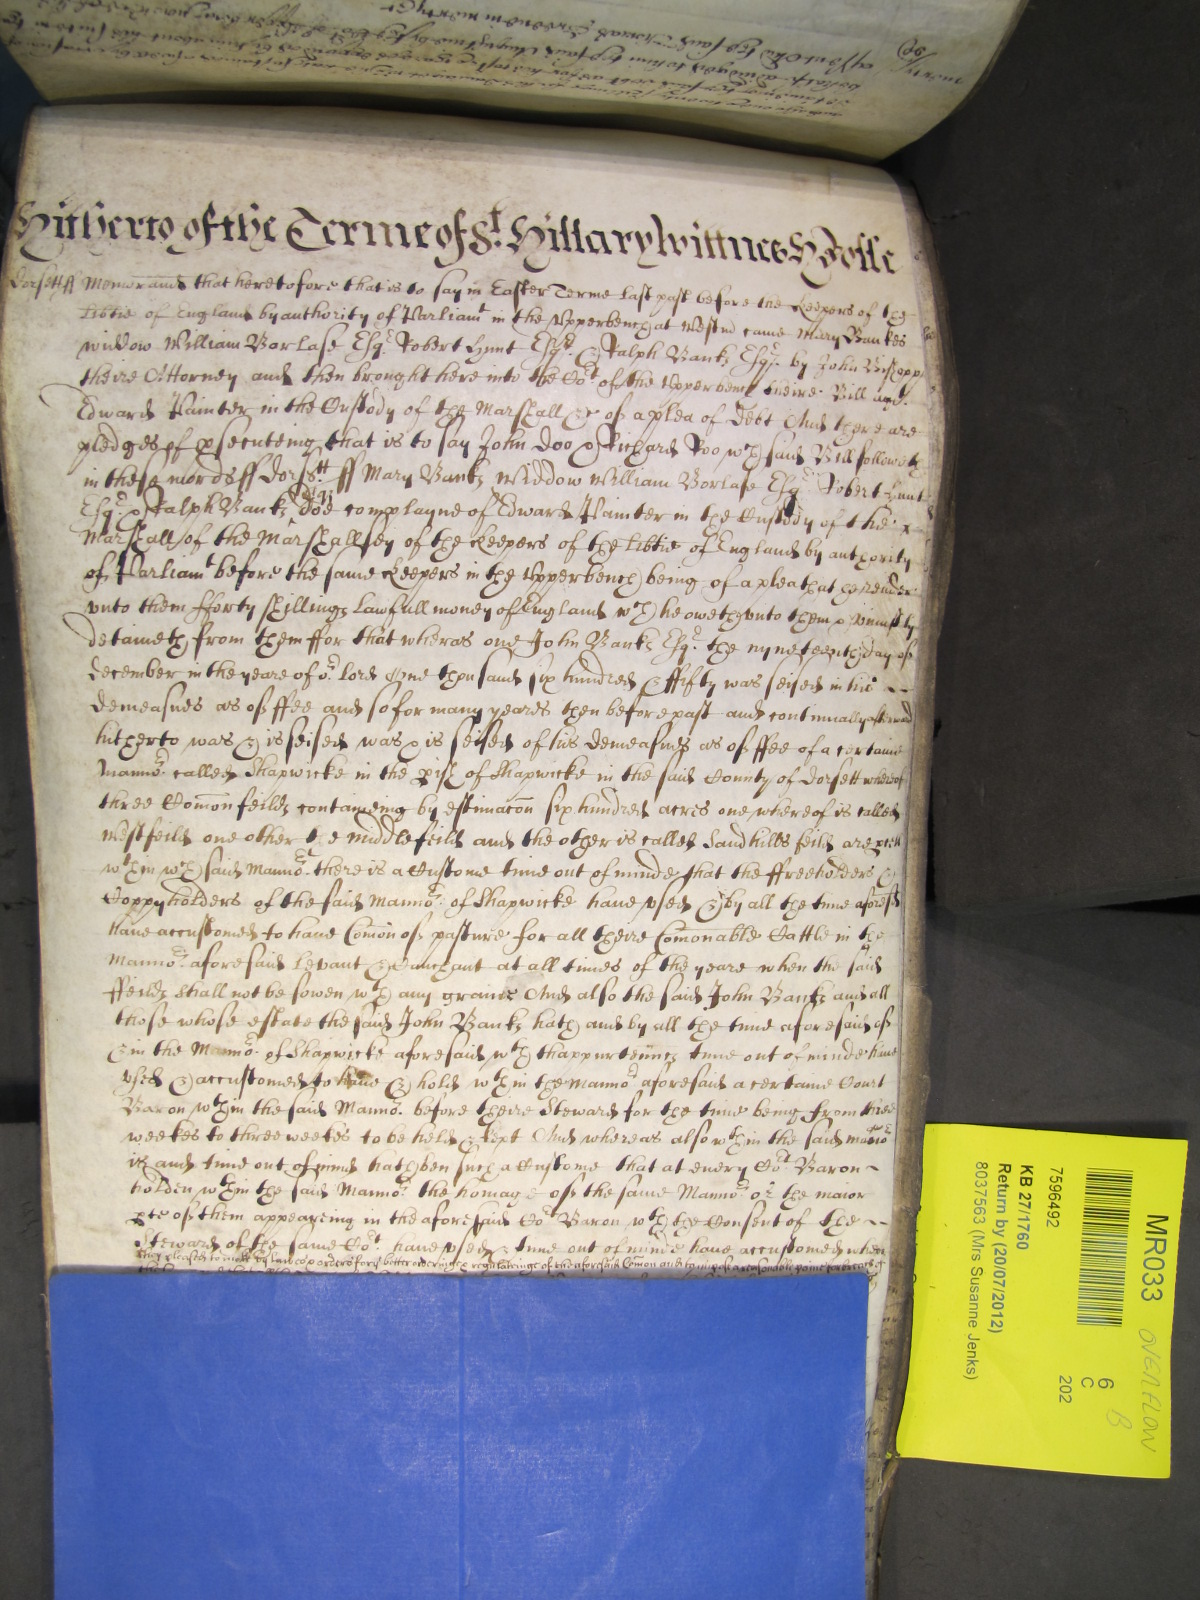 Hitherto of the Terme of St. Hillary wittnes H Rolle
Dorsett ff Memorand that heretofore that is to say in Easter Terme last past before the Keepers of the
Libtie of England by authority of Parliamt in the Vpperbench at Westm came Mary Bankes
widow William Borlase Esqr Robert Hunt Esqr & Ralph Banks Esqr by John
theire Attorney and then brought here into the Cort of the Vpperbench theire Bill agt
Edward Painter in the Custody of the Marshall &c of a plea of Debt And there are
pledges of psecuteing that is to say John Doo & Richard Roo wch said Bill followeth
in these words ff Dorstt ff Mary Banks Widdow William Borlase Esqr Robert Hunt
Esqr & Ralph Banks doe complayne of Edward Painter in the Custody of the
Marshall of the Marshallsey of the Keepers of the Libtie of England by authority
of Parliamt before the same Keepers in the Vpperbench being of a plea that he render
vnto them fforty shillings lawfull money of England wch he oweth vnto them & vniustly
detaineth from them ffor that wheras one John Banks Esqr the nyneteenth day of
December in the yeare of or Lord One thousand six hundred & ffifty was seised in his
demeasnes as of ffee and so for many yeares then before past and continually afterward
hitherto was & is seised was & is seised of his demeasnes as of ffee of a certaine
Mannor called Shapwicke in the pish of Shapwicke in the said County of Dorsett whereof
three Comon feilds contayneing by estimacon six hundred acres one whereof is called
Westfeild one other the Middlefeild and the other is called Sandhills feild are pcell
wthin wch said Mannor there is a Custome time out of minde that the ffreeholders &
Coppyholders of the said Mannor of Shapwicke haue vsed & by all the time aforesd
Haue accustomed to haue Comon of pasture for all theire Comonable Cattle in the
Mannor aforesaid Levant & Couchant at all times of the yeare when the said
ffeilds shall not be sowen wth any graine And also the said John Banks and all
those whose estate the said John Banks hath and by all the time aforesaid of
& in the Mannor of Shapwicke aforesaid wth thappurtennces time out of minde haue
vsed & accustomed to haue & hold wthin the Mannor aforesaid a certaine Court
Baron wthin the said Mannor before theire Steward for the time being from three
weekes to three weekes to be held & kept And whereas also wthin the said Mannor
is and time out of mind hath ben such a Custome that at euery Cort Baron
holden wthin the said Mannor the homage of the same Mannor or the maior
pte of them appeareing in the aforesaid Cort Baron wth the Consent of the
Steward of the same Cort haue vsed & time out of minde haue accustomed when
they pleased to make by lawes or orders for ye better ordering & regulateing of the aforesaid Comon and to impose a reasonable paine
MR033
OVERFLOW
B
6
C
202
7596492
KB 27/1760
Return by (20/07/2012)
8037563 (Mrs Susanne Jenks)